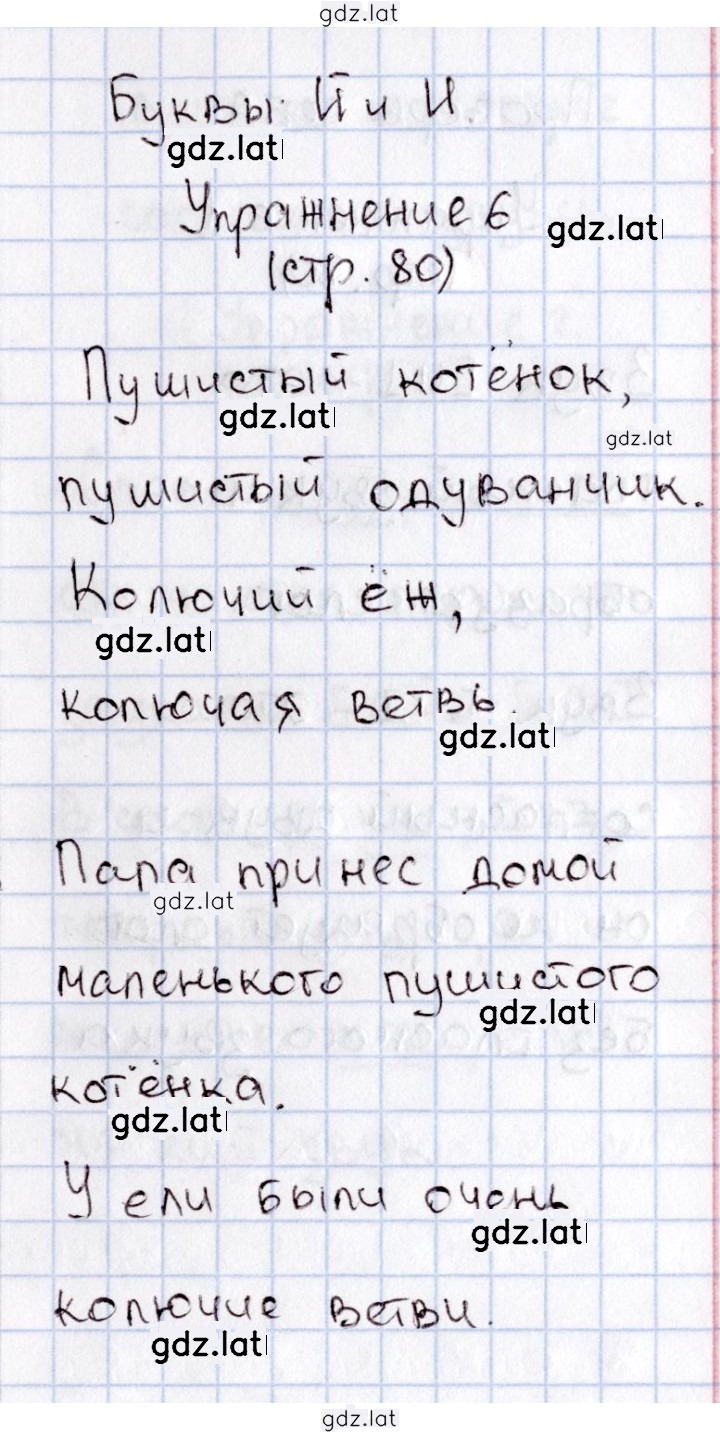 gdz.lat
Буквы Й и И.
gdz.lat
Упражнение 6
gdz.lat
(стр. 80)
Пушистый котёнок,
gdz.lat
gdz.lat
пушистый одуванчик.
Колючий ёж,
gdz.lat
колючая ветвь.
gdz.lat
Папа принес домой
gdz.lat
маленького пушистого
gdz.lat
котёнка.
gdz.lat
У ели были очень
gdz.lat
колючие ветви.
gdz.lat
gdz.lat